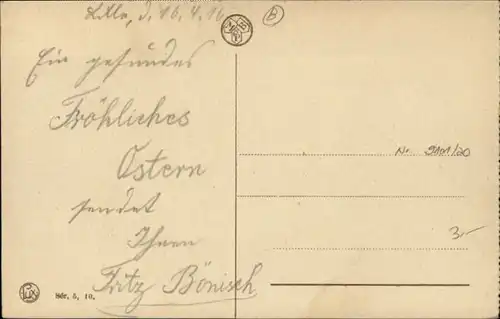 Lille, d. 16.4.16
B
Ein gesundes
Fröhliches
Ostern
sendet
Ihnen
Fritz Bönisch
No. 9101/20
3,-
LUX
Sér. 5, 10.